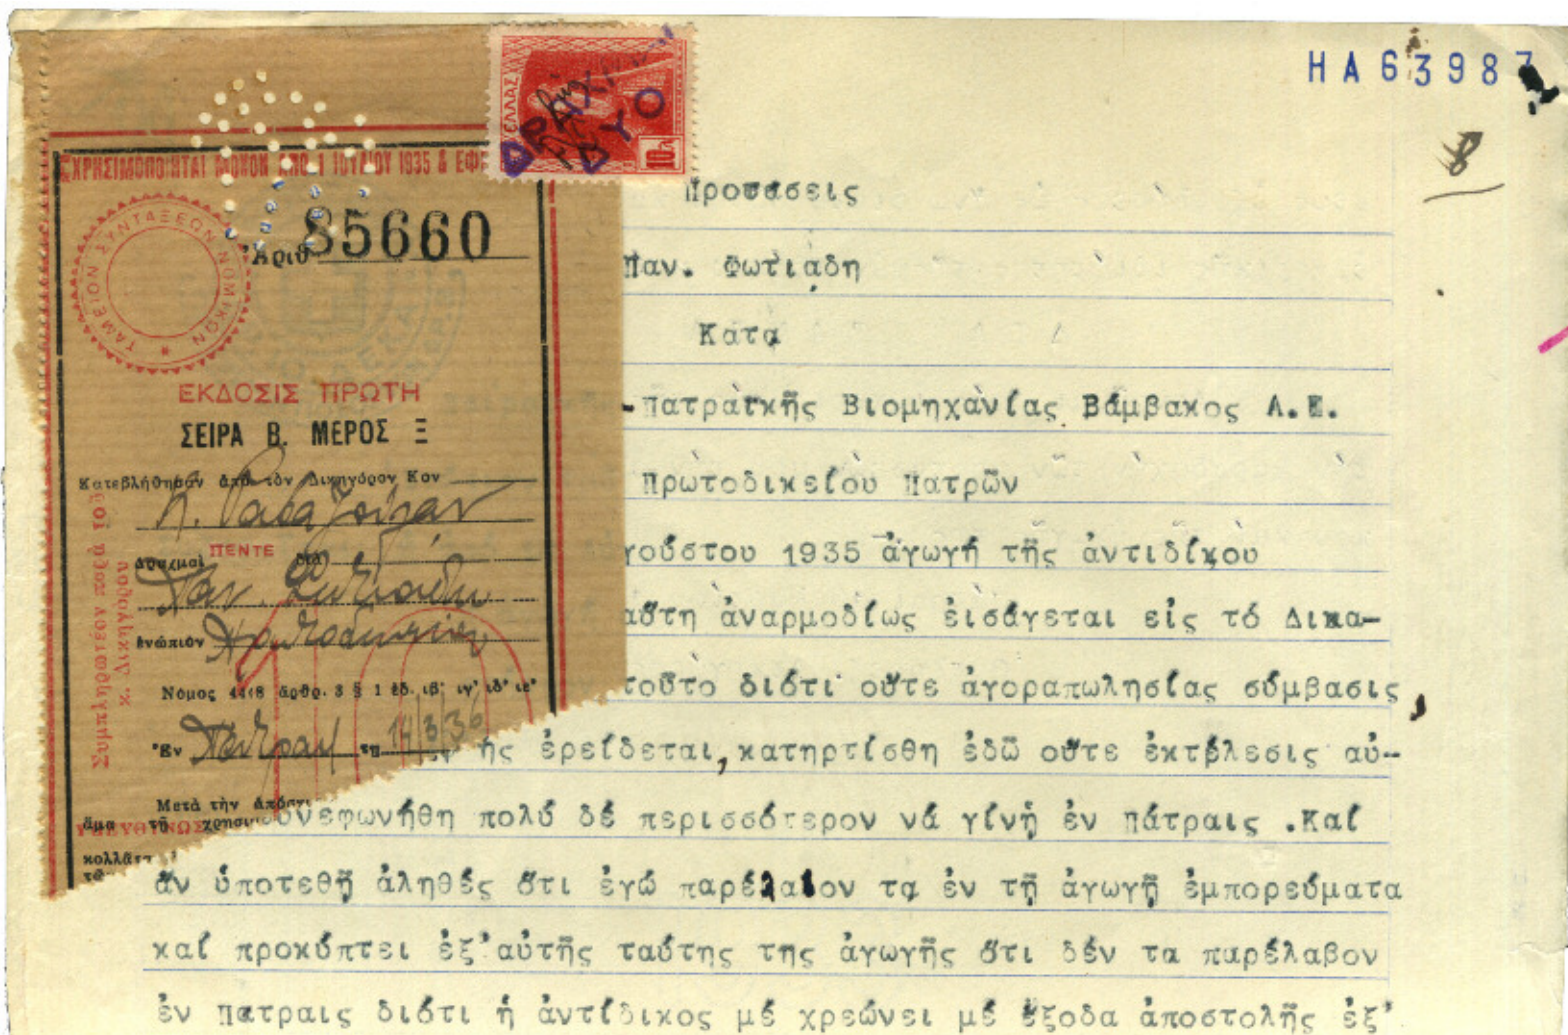 ΗΑ 63987
8
ΕΛΛΑΣ
ΔΡΑΧΜΑΙ
ΔΥΟ
10Λ
ΧΡΗΣΙΜΟΠΟΙΗΤΑΙ ΜΟΝΟΝ ΑΠΟ 1 ΙΟΥΛΙΟΥ 1935 & ΕΦ
ΤΑΜΕΙΟΝ ΣΥΝΤΑΞΕΩΝ ΝΟΜΙΚΩΝ
Ἀριθ 85660
ΕΚΔΟΣΙΣ ΠΡΩΤΗ
ΣΕΙΡΑ Β. ΜΕΡΟΣ Ξ
Κατεβλήθησαν ἀπὸ τὸν Δικηγόρον Κον
Δραχμαὶ ΠΕΝΤΕ διὰ
Παν. Φωτιάδην
ἐνώπιον
Νόμος 4448 ἄρθρ. 3 § 1 ἐδ. ιβ' ιγ' ιδ' ιε'
Ἐν Πάτραις τῇ 14/3/36
Μετὰ τὴν
ΥΠΕΥΘΥΝΟΣ
Συμπληρωτέον παρὰ τοῦ
κ. Δικηγόρου
Προτάσεις
Παν. Φωτιάδη
Κατα
-Πατραϊκῆς Βιομηχανίας Βάμβακος Α.Ε.
Πρωτοδικείου Πατρῶν
γούστου 1935 ἀγωγή τῆς ἀντιδίκου
αὕτη ἀναρμοδίως εἰσάγεται εἰς τό Δικα-
τοῦτο διότι οὔτε ἀγοραπωλησίας σύμβασις,
ἧς ἐρείδεται, κατηρτίσθη ἐδῶ οὔτε ἐκτέλεσις αὐ-
συνεφωνήθη πολύ δέ περισσότερον νά γίνῃ ἐν Πάτραις .Καί
ἄν ὑποτεθῇ ἀληθές ὅτι ἐγώ παρέλαβον τα ἐν τῇ ἀγωγῇ ἐμπορεύματα
καί προκύπτει ἐξ'αὐτῆς ταύτης της ἀγωγῆς ὅτι δέν τα παρέλαβον
ἐν Πατραις διότι ἡ ἀντίδικος μέ χρεώνει μέ ἔξοδα ἀποστολῆς ἐξ'